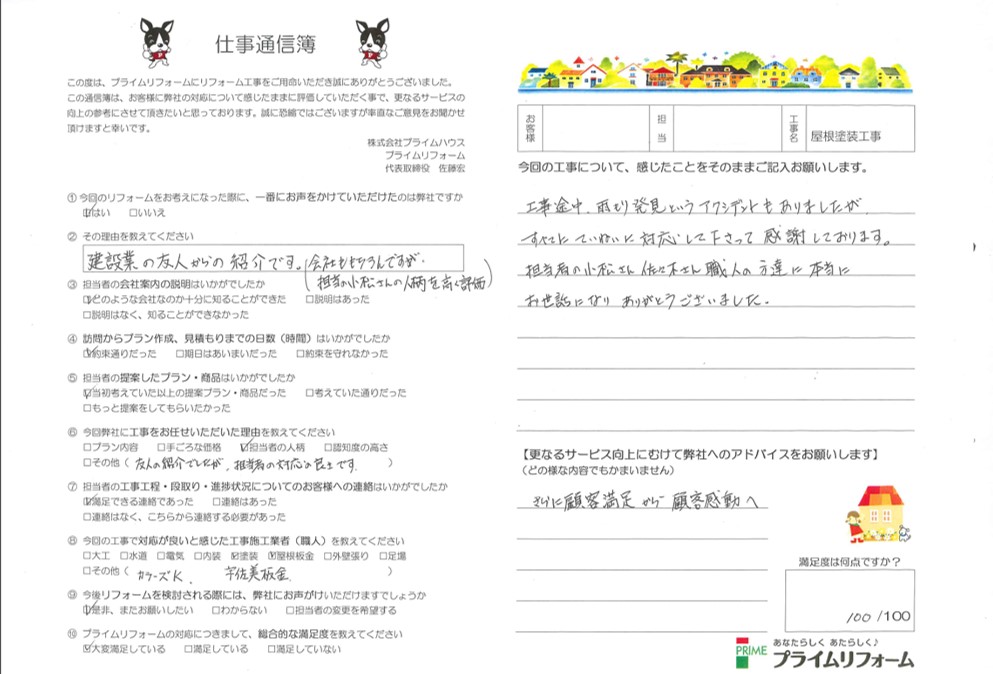 仕事通信簿
この度は、プライムリフォームにリフォーム工事をご用命いただき誠にありがとうございました。
この通信簿は、お客様に弊社の対応について感じたままに評価していただく事で、更なるサービスの
向上の参考にさせて頂きたいと思っております。誠に恐縮ではございますが率直なご意見をお聞かせ
頂けますと幸いです。
株式会社プライムハウス
プライムリフォーム
代表取締役 佐藤宏
① 今回のリフォームをお考えになった際に、一番にお声をかけていただけたのは弊社ですか
☑はい □いいえ
② その理由を教えてください
建設業の友人からの紹介です。(会社ももちろんですが、
担当の小松さんの人柄を高く評価)
③ 担当者の会社案内の説明はいかがでしたか
☑どのような会社なのか十分に知ることができた □説明はあった
□説明はなく、知ることができなかった
④ 訪問からプラン作成、見積もりまでの日数（時間）はいかがでしたか
☑約束通りだった □期日はあいまいだった □約束を守れなかった
⑤ 担当者の提案したプラン・商品はいかがでしたか
☑当初考えていた以上の提案プラン・商品だった □考えていた通りだった
□もっと提案をしてもらいたかった
⑥ 今回弊社に工事をお任せいただいた理由を教えてください
□プラン内容 □手ごろな価格 ☑担当者の人柄 □認知度の高さ
□その他（友人の紹介でしたが、担当者の対応の良さです。）
⑦ 担当者の工事工程・段取り・進捗状況についてのお客様への連絡はいかがでしたか
☑満足できる連絡であった □連絡はあった
□連絡はなく、こちらから連絡する必要があった
⑧ 今回の工事で対応が良いと感じた工事施工業者（職人）を教えてください
□大工 □水道 □電気 □内装 ☑塗装 ☑屋根板金 □外壁張り □足場
□その他（カラーズK、 宇佐美板金）
⑨ 今後リフォームを検討される際には、弊社にお声がけいただけますでしょうか
☑是非、またお願いしたい □わからない □担当者の変更を希望する
⑩ プライムリフォームの対応につきまして、総合的な満足度を教えてください
☑大変満足している □満足している □満足していない
お客様 担当 工事名 屋根塗装工事
今回の工事について、感じたことをそのままご記入お願いします。
工事途中、雨もり発見というアクシデントもありましたが、
すべてにていねいに対応して下さって感謝しております。
担当者の小松さん佐々木さん職人の方達に本当に
お世話になりありがとうございました。
【更なるサービス向上にむけて弊社へのアドバイスをお願いします】
（どの様な内容でもかまいません）
さらに顧客満足から顧客感動へ
満足度は何点ですか？
100/100
あなたらしく あたらしく♪
PRIME プライムリフォーム